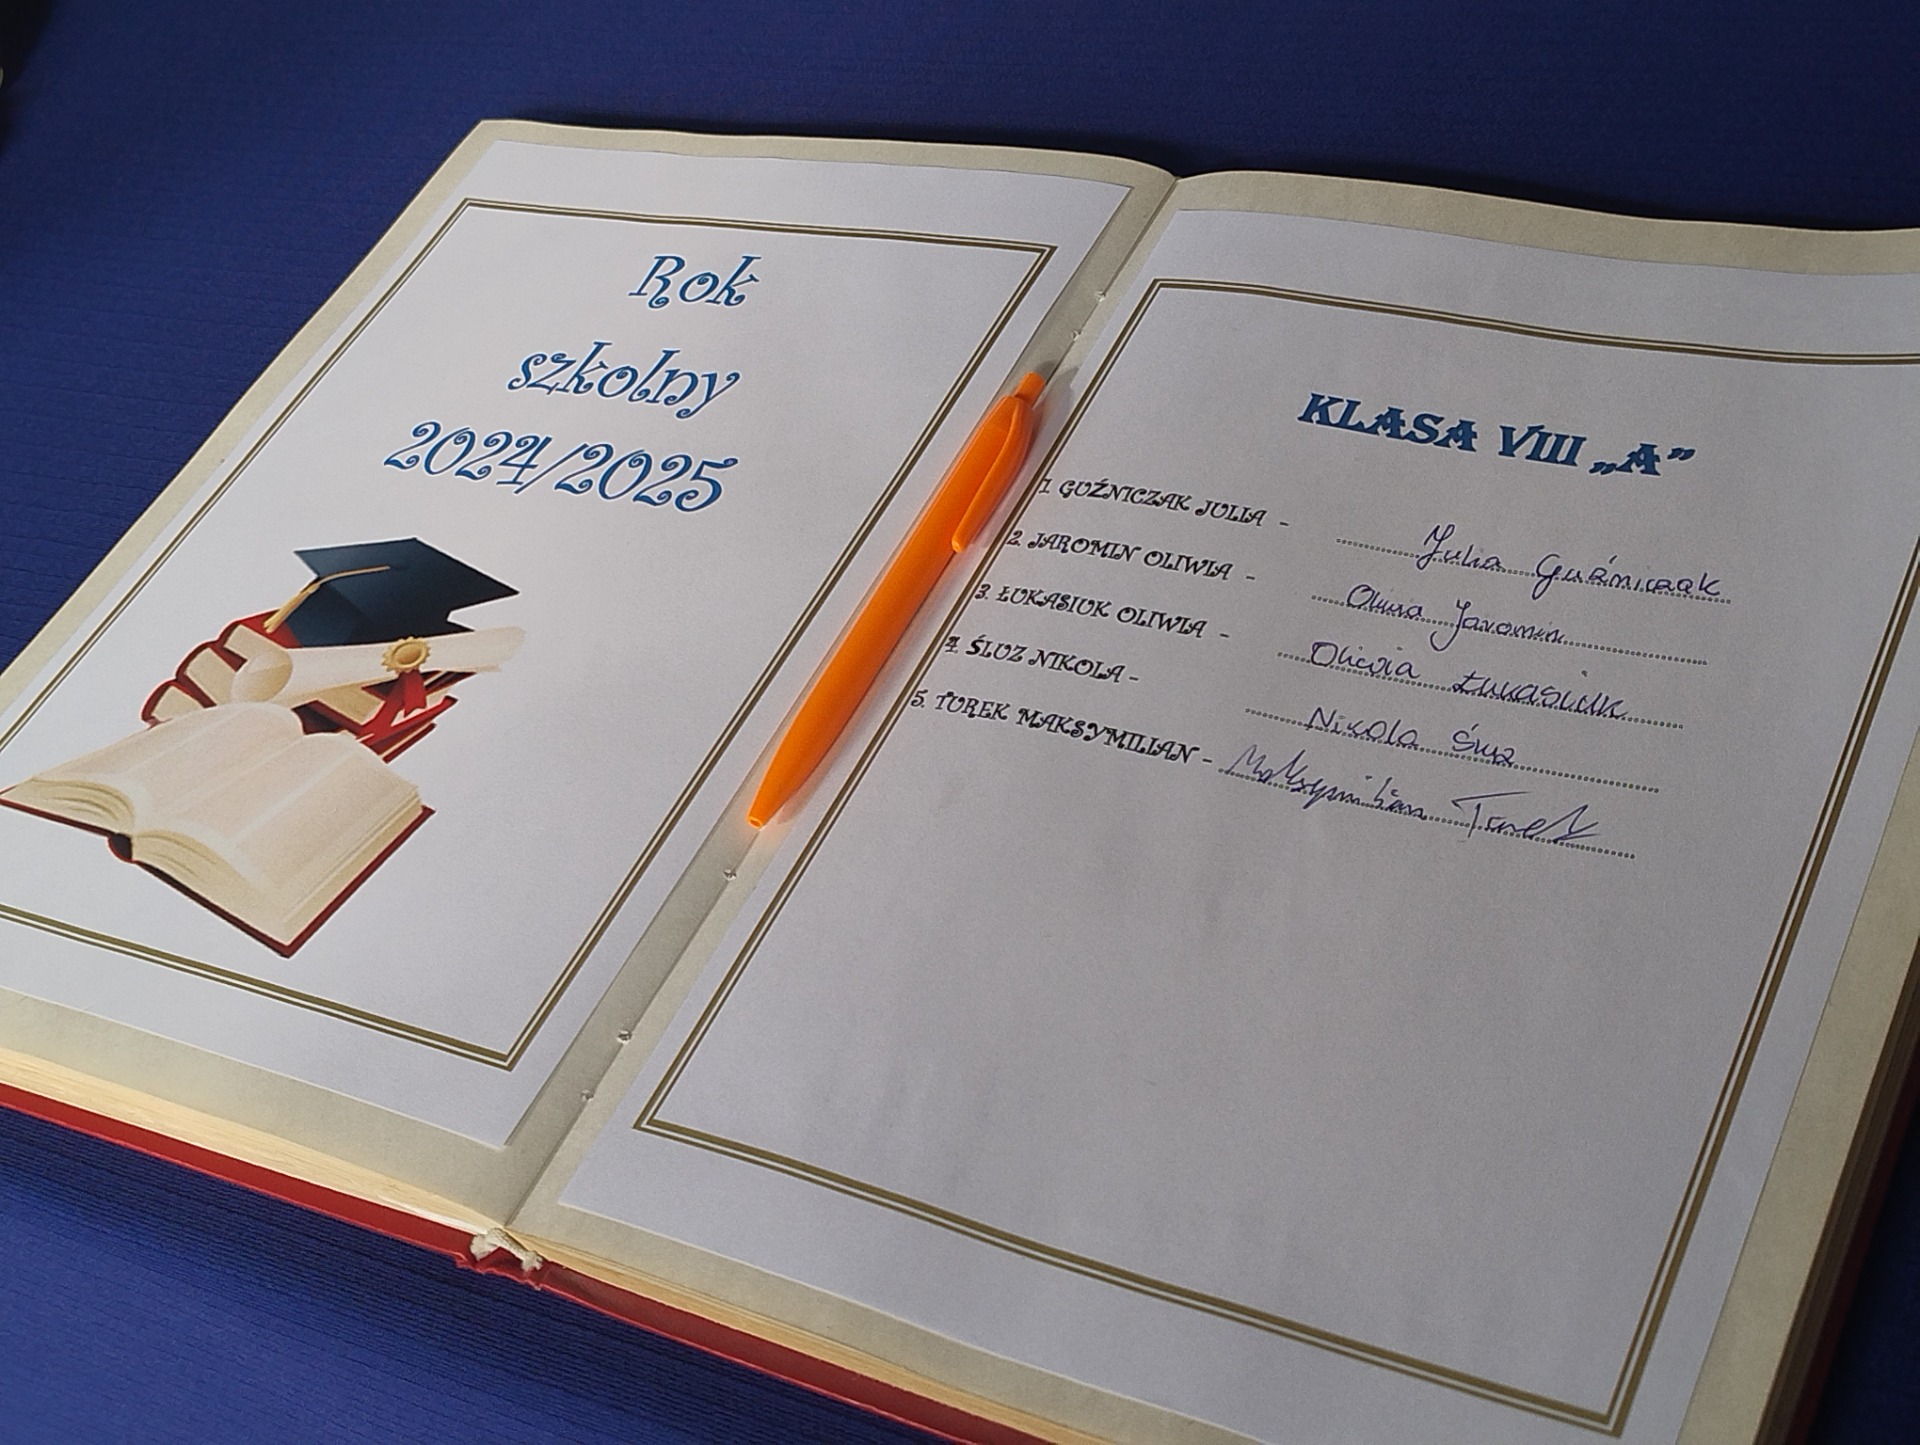 Rok
szkolny
2024/2025
KLASA VIII „A”
1. GUŹNICZAK JULIA - Julia Guźniczak
2. JAROMIN OLIWIA - Oliwia Jaromin
3. ŁUKASIUK OLIWIA - Oliwia Łukasiuk
4. ŚLUZ NIKOLA - Nikola Śluz
5. TUREK MAKSYMILIAN - Maksymilian Turek